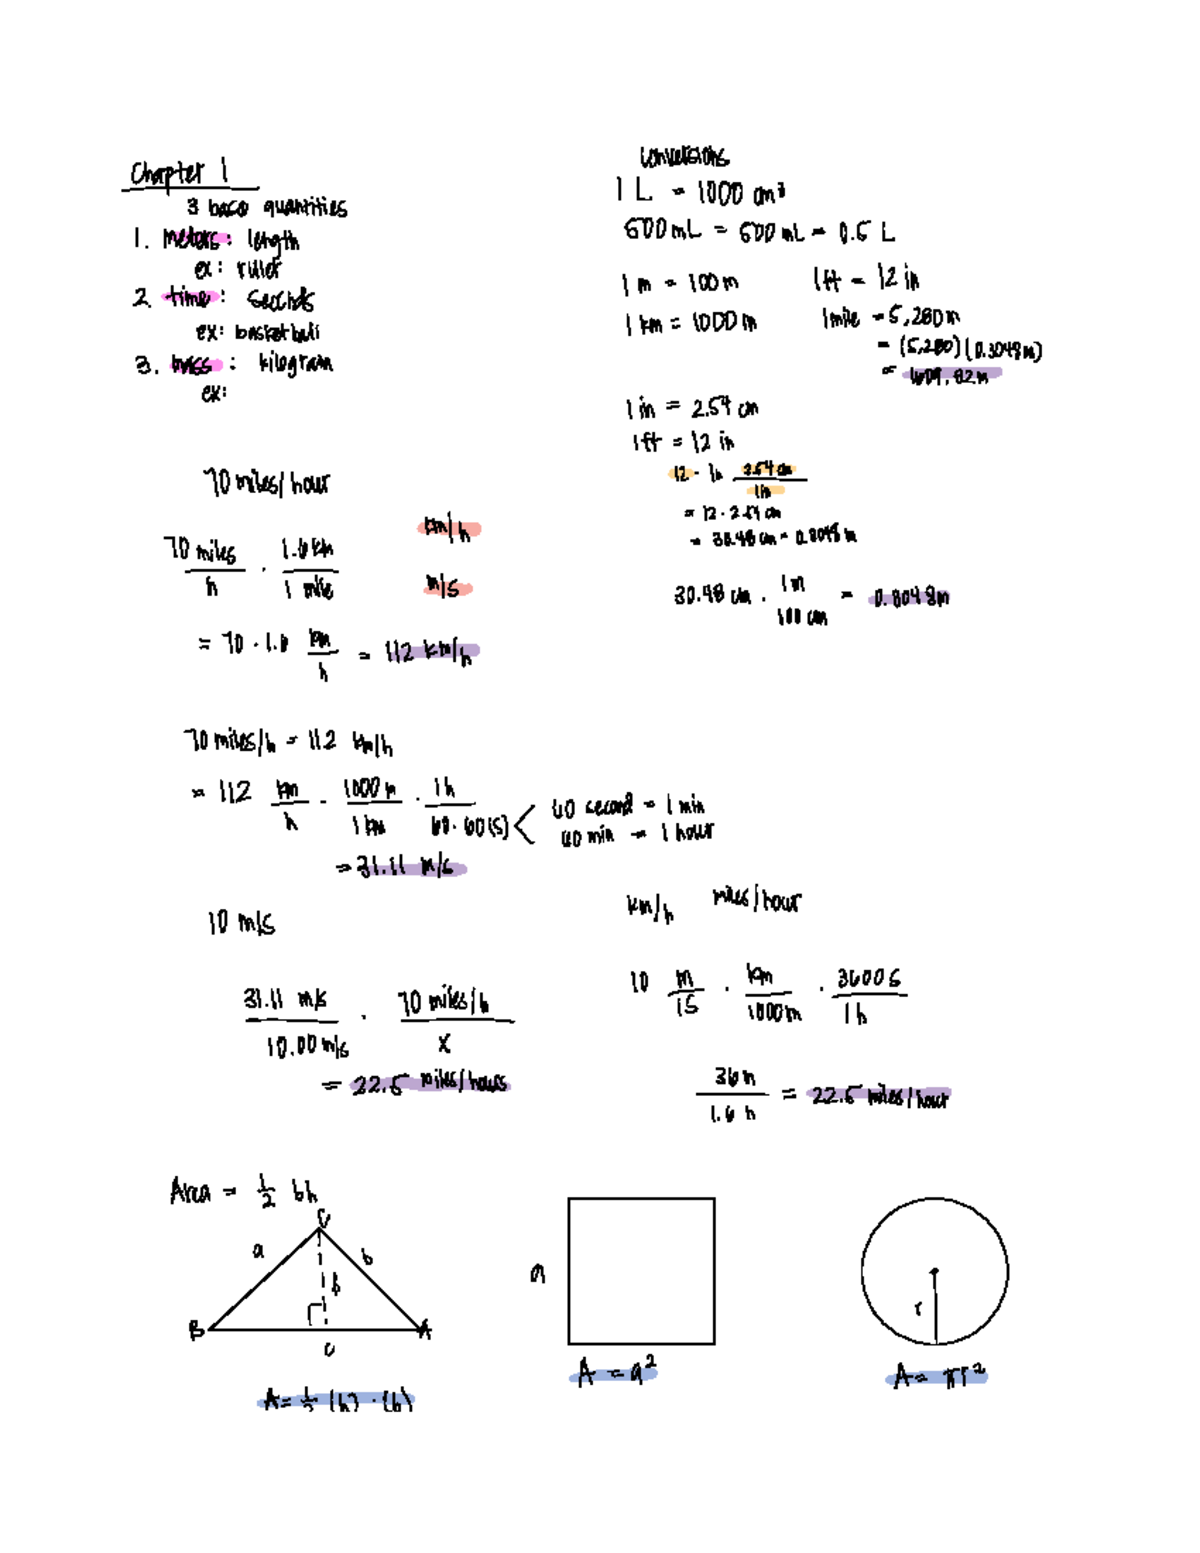 Chapter 1
3 base quantities
1. meters: length
ex: ruler
2. time: seconds
ex: basketball
3. mass: kilogram
ex:
70 miles/hour
km/h
m/s
70 miles/h · 1.6 km/1 mile
= 70 · 1.6 km/h = 112 km/h
70 miles/h = 112 km/h
= 112 km/h · 1000 m/1 km · 1h/60·60(s) < 60 second = 1 min
60 min = 1 hour
= 31.11 m/s
10 m/s
31.11 m/s/10.00 m/s · 70 miles/h/x
= 22.5 miles/hours
Conversions
1 L = 1000 cm³
500 mL = 500 mL = 0.5 L
1 m = 100 m
1 km = 1000 m
1ft = 12 in
1mile = 5,280 m
= (5,280)(0.3048m)
=
1 in = 2.54 cm
1ft = 12 in
12 · in 2.54 cm/1in
= 12 · 2.54 cm
= 30.48 cm = 0.3048 m
30.48 cm · 1m/100 cm = 0.3048m
km/h miles/hour
10 m/1S · km/1000m · 3600 S/1h
36/1.6 h = 22.5 miles/hour
Area = 1/2 bh
C
a
b
h
B
A
c
A = 1/2 (h) · (b)
a
A = a²
r
A = πr²